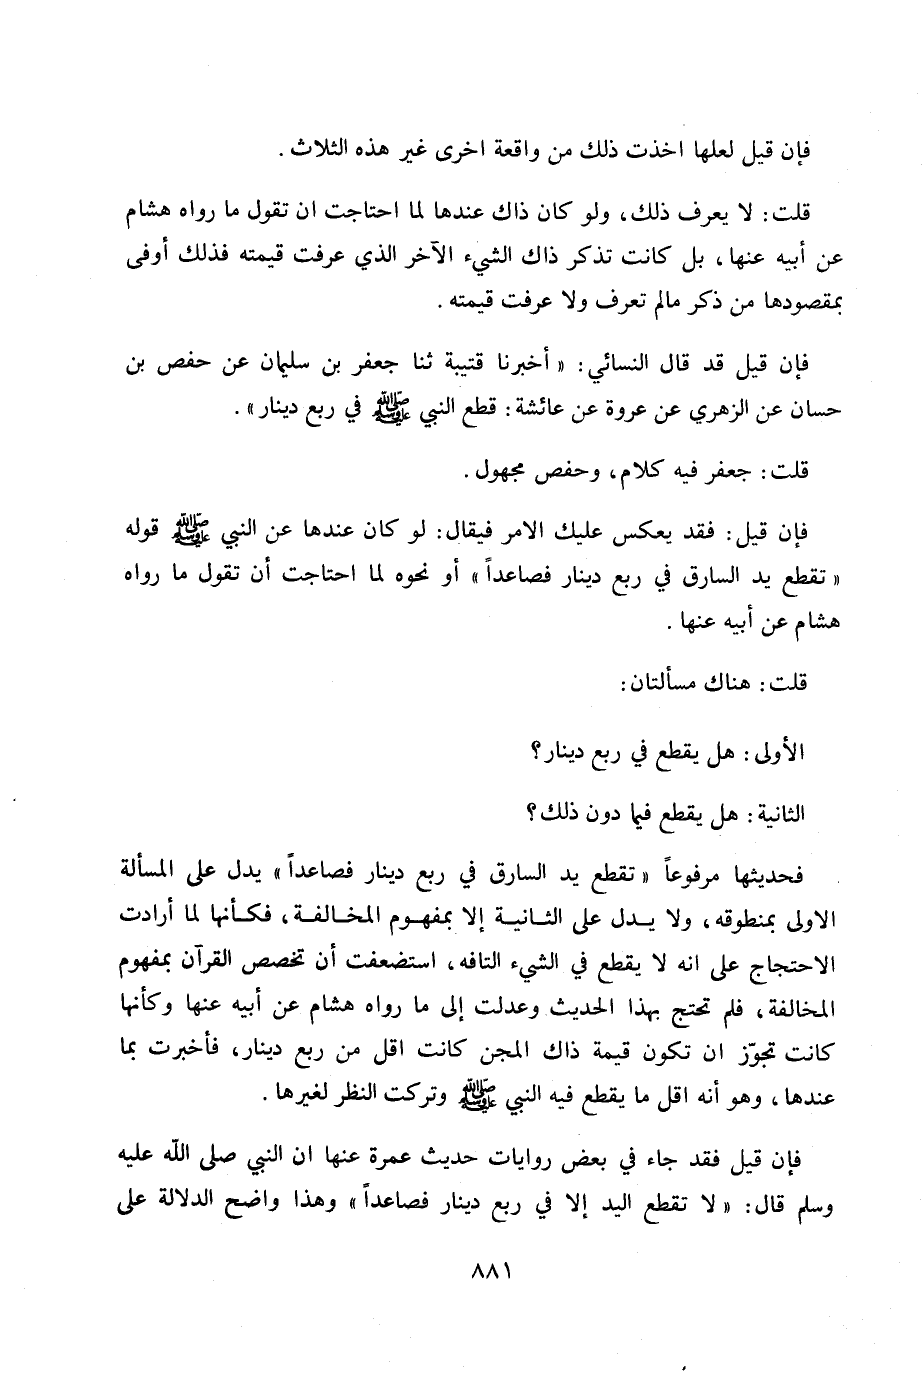 فإن قيل لعلها اخذت ذلك من واقعة اخرى غير هذه الثلاث .
قلت : لا يعرف ذلك ، ولو كان ذاك عندها لما احتاجت ان تقول ما رواه هشام
عن أبيه عنها ، بل كانت تذكر ذاك الشيء الآخر الذي عرفت قيمته فذلك أوفى
بمقصودها من ذكر مالم تعرف ولا عرفت قيمته .
فإن قيل قد قال النسائي : « أخبرنا قتيبة ثنا جعفر بن سليمان عن حفص بن
حسان عن الزهري عن عروة عن عائشة : قطع النبي ﷺ في ربع دينار » .
قلت : جعفر فيه كلام ، وحفص مجهول .
فإن قيل : فقد يعكس عليك الامر فيقال : لو كان عندها عن النبي ﷺ قوله
« تقطع يد السارق في ربع دينار فصاعداً » أو نحوه لما احتاجت أن تقول ما رواه
هشام عن أبيه عنها .
قلت : هناك مسألتان :
الأولى : هل يقطع في ربع دينار ؟
الثانية : هل يقطع فيما دون ذلك ؟
فحديثها مرفوعاً « تقطع يد السارق في ربع دينار فصاعداً » يدل على المسألة
الاولى بمنطوقه ، ولا يدل على الثانية إلا بمفهوم المخالفة ، فكأنها لما أرادت
الاحتجاج على انه لا يقطع في الشيء التافه ، استضعفت أن تخصص القرآن بمفهوم
المخالفة ، فلم تحتج بهذا الحديث وعدلت إلى ما رواه هشام عن أبيه عنها وكأنها
كانت تجوّز ان تكون قيمة ذاك المجن كانت اقل من ربع دينار ، فأخبرت بما
عندها ، وهو أنه اقل ما يقطع فيه النبي ﷺ وتركت النظر لغيرها .
فإن قيل فقد جاء في بعض روايات حديث عمرة عنها ان النبي صلى الله عليه
وسلم قال : « لا تقطع اليد إلا في ربع دينار فصاعداً » وهذا واضح الدلالة على
٨٨١